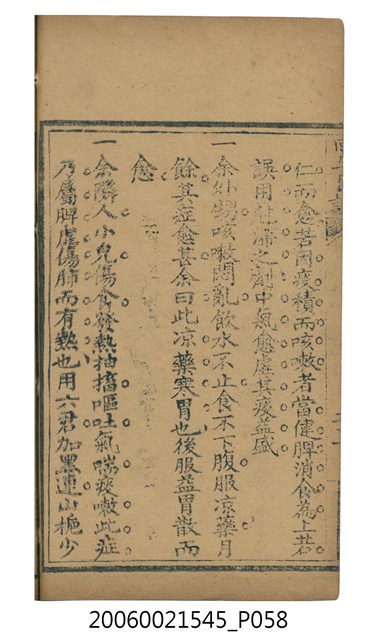 仁而愈苦因痰積而咳嗽者當健脾消食為上若
誤用尅滯之劑中氣愈虛其痰益盛
一余外甥咳嗽悶亂飲水不止食不下腹服凉藥月
餘其症愈甚余曰此凉藥寒胃也後服益胃散而
愈
一余隣人小兒傷食發熱抽搐嘔吐氣喘痰嗽此症
乃屬脾虛傷肺而有熱也用六君加黑連山梔少
20060021545_P058